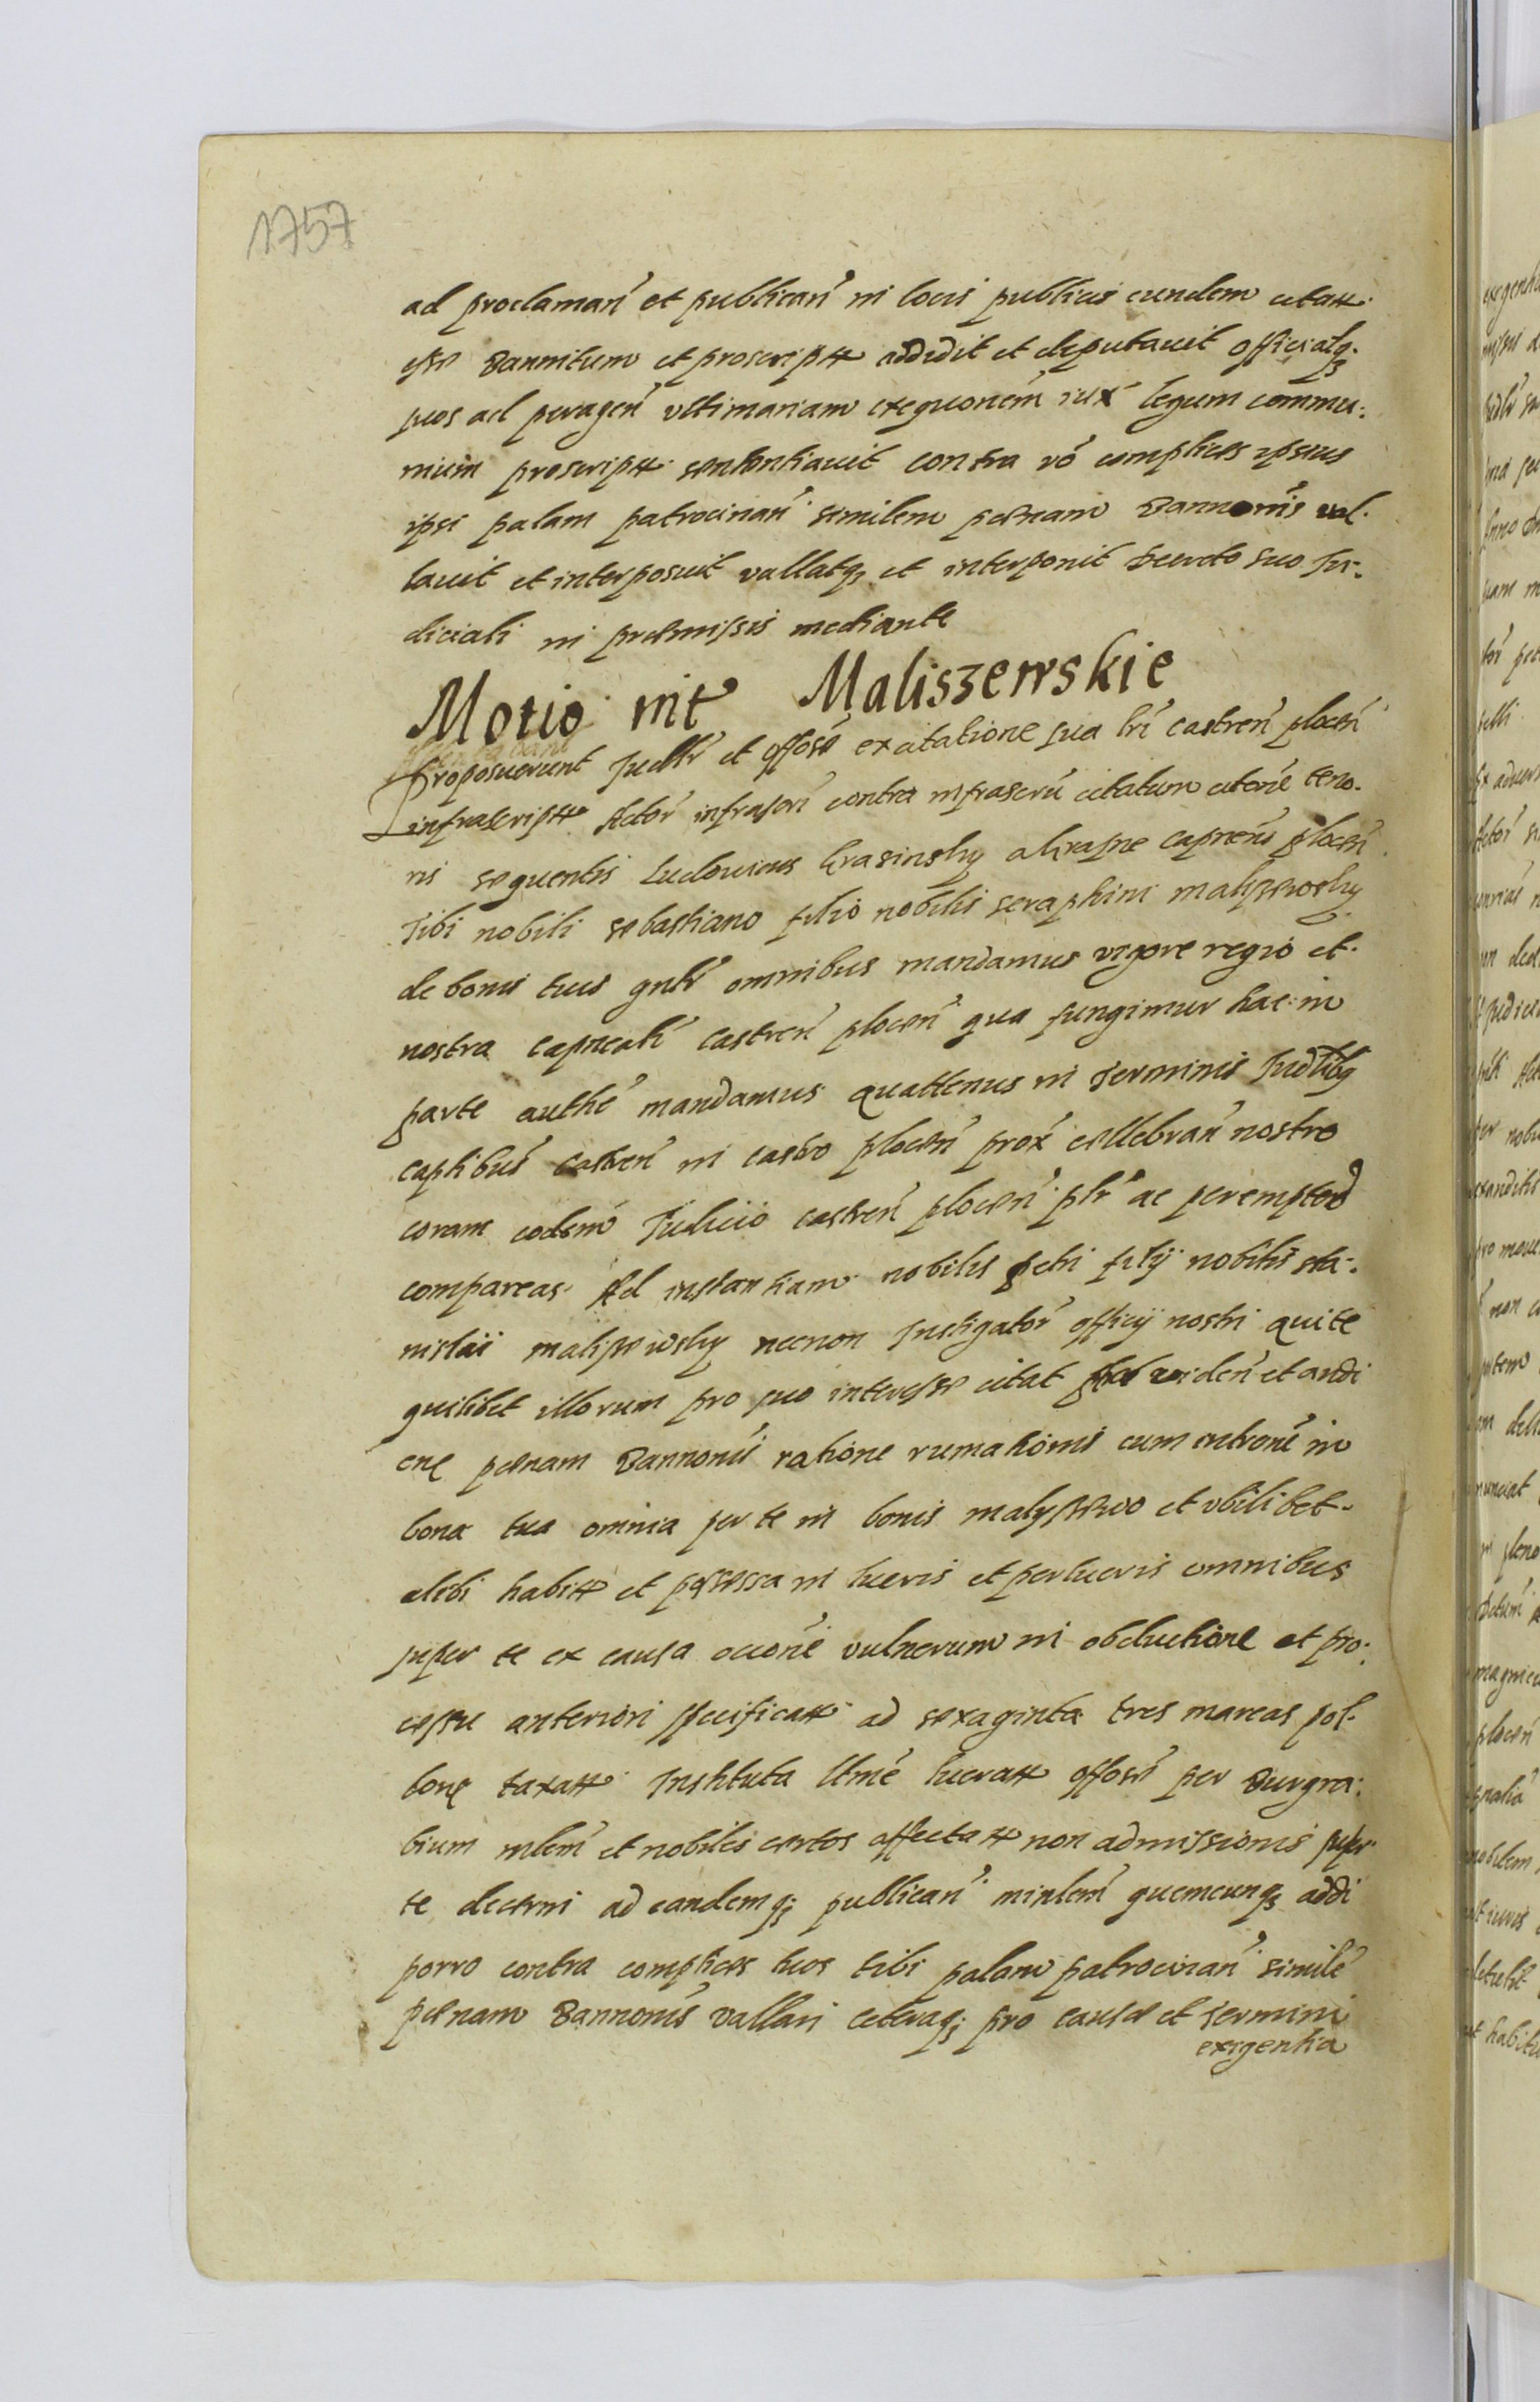 1757
ad proclaman et publican in locis publicis eundem citatt.
esse Bannitum et proscriptt addidit et deputavit officialqз
suos ad peragen ultimariam exequonem iux legum commu:
nium proscriptt. sententiavit contra vo complices ipsius
ipsi palam patrocinan similem pœnam Bannonis val.
lavit et interposuit vallatqз et interponit Decreto suo Ju:
diciali in præmissis mediante
Motio int Maliszewskie
Proposuerunt Judlr et offose ex citatione sua lri castren plocen
infrascriptt Actor infrascri contra infrascru citatum citone teno.
ris sequentis Ludovicus Krasinsky a Krasne Capneus plocen
Tibi nobili sebastiano filio nobilis seraphini maliszewsky
de bonis tuis gnlr omnibus mandamus vigore regio et.
nostra capneali castren plocen qua fungimur hac in
parte authe mandamus quattenus in Terminis Judlibз
captibus castren in castro plocen prox cellebran nostro
coram eodem Judicio castren plocen plr ac perempto
compareas. Ad instantiam nobilis petri filij nobilis sta:
nislai maliszewsky necnon Instigator officij nostri qui te
quilibet illorum pro suo interesse citat viden et audi
ene pœnam Bannonis ratione rumationis cum introne in
bona tua omnia per te in bonis malyszewo et ubilibet.
alibi habitt et possessa in lucris et perlucris omnibus
super te ex causa occone vulnerum in obductione et pro:
cessu anteriori specificatt ad sexaginta tres marcas pol.
lone taxatt. Instituta ltme lucratt offose per Burgra:
bium mlem et nobiles certos affectatt non admissionis super
te decerni ad eandemqз publican minlem quemcunqз addi
porro contra complices tuos tibi palam patrocinan simile
pœnam Bannonis vallari ceteraqз pro causæ et Termini
exigentia